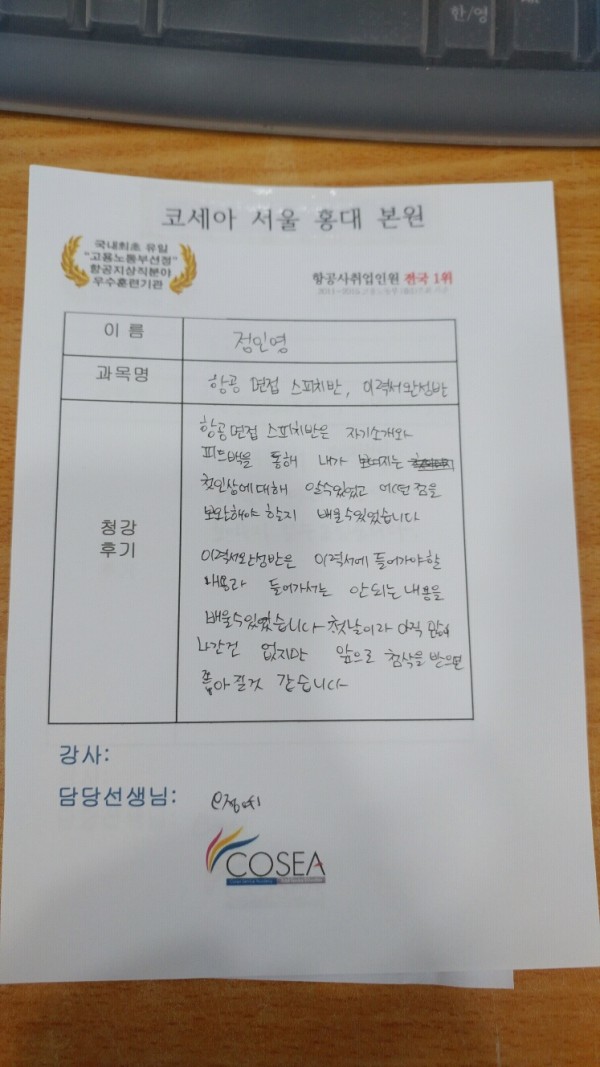 한/영
코세아 서울 홍대 본원
국내최초 유일
"고용노동부선정"
항공지상직분야
우수훈련기관
항공사취업인원 전국 1위
이 름
정인영
과목명
항공 면접 스피치반, 이력서완성반
청강
후기
항공면접 스피치반은 자기소개와
피드백을 통해 내가 보여지는
첫인상에대해 알수있었고 어떤점을
보완해야 할지 배울수있었습니다
이력서완성반은 이력서에 들어가야할
내용과 들어가서는 안되는 내용을
배울수있었습니다 첫날이라 아직
나간건 없지만 앞으로 첨삭을 받으면
좋아질것 같습니다
강사:
담당선생님:
COSEA